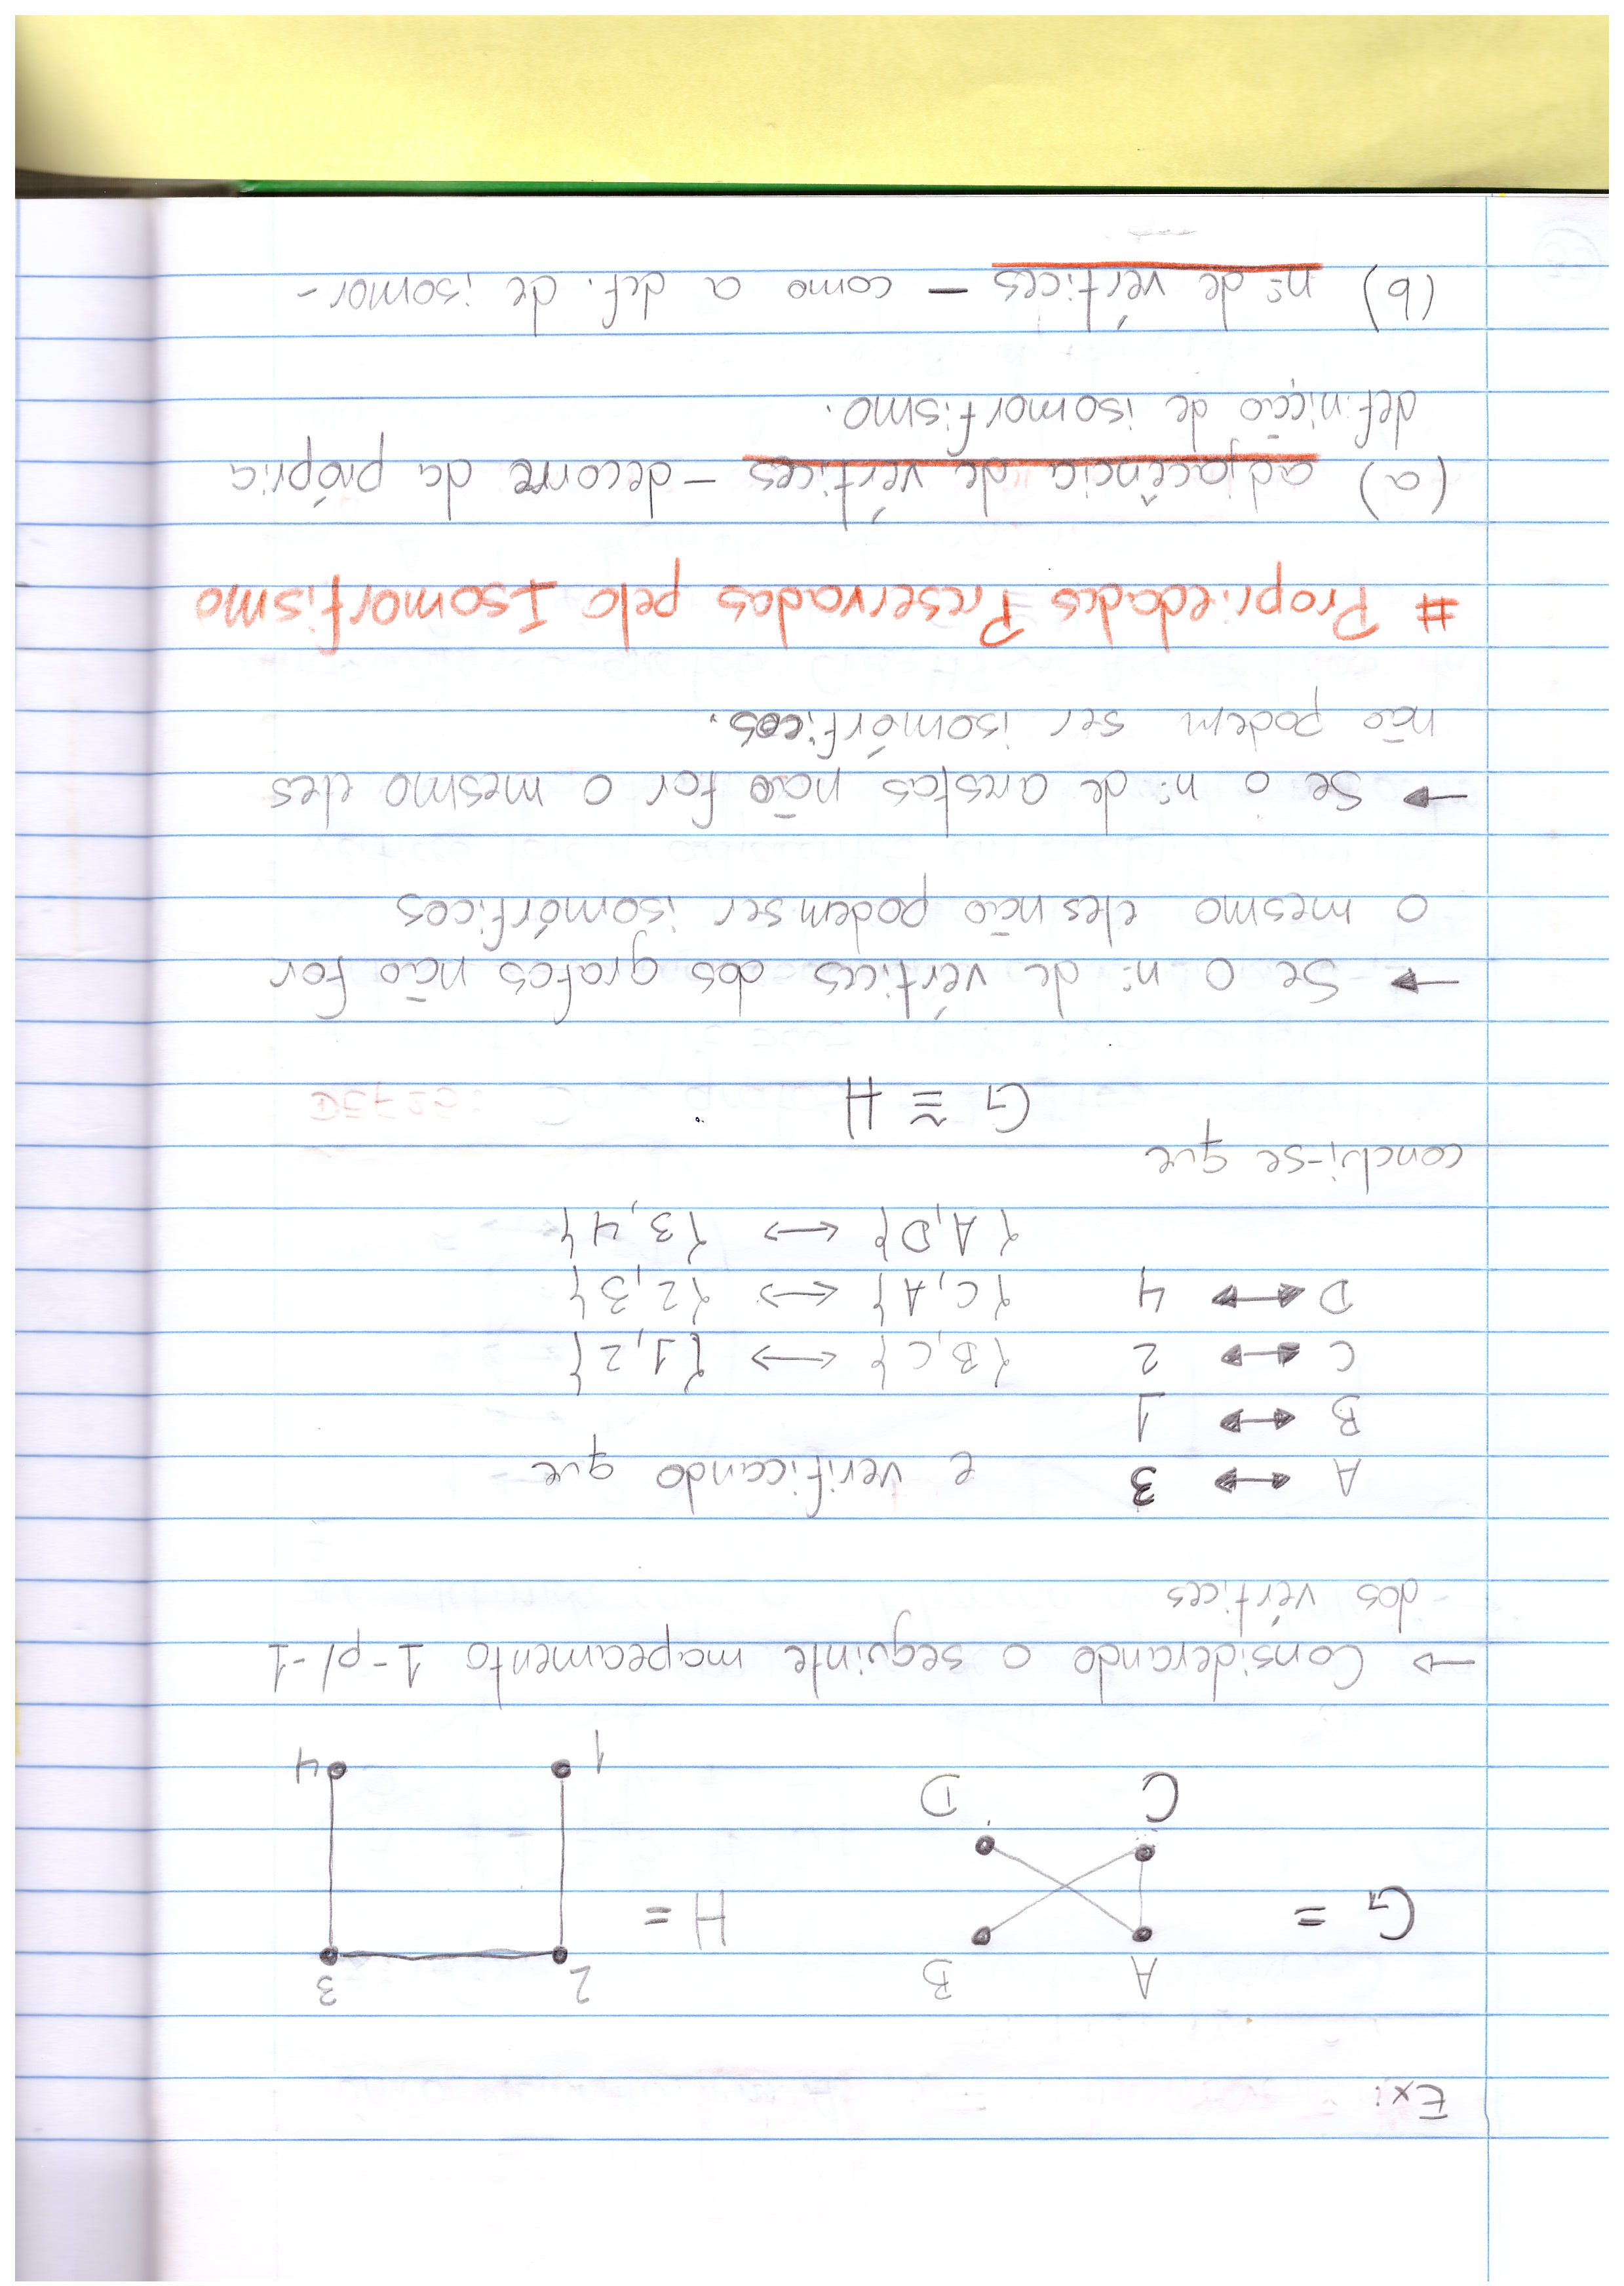 Ex:
A B 2 3
G = H =
C D 1 4
→ Considerando o seguinte mapeamento 1-p/-1
dos vértices
A ↔ 3 e verificando que
B ↔ 1
C ↔ 2 {B,C} ↔ {1,2}
D ↔ 4 {C,A} ↔ {2,3}
{A,D} ↔ {3,4}
conclui-se que
G ≅ H
→ Se o nº de vértices dos grafos não for
o mesmo eles não podem ser isomórficos
→ Se o nº de arestas não for o mesmo eles
não podem ser isomórficos.
# Propriedades Preservadas pelo Isomorfismo
(a) adjacência de vértices – decorre da própria
definição de isomorfismo.
(b) nº de vértices – como a def. de isomor-